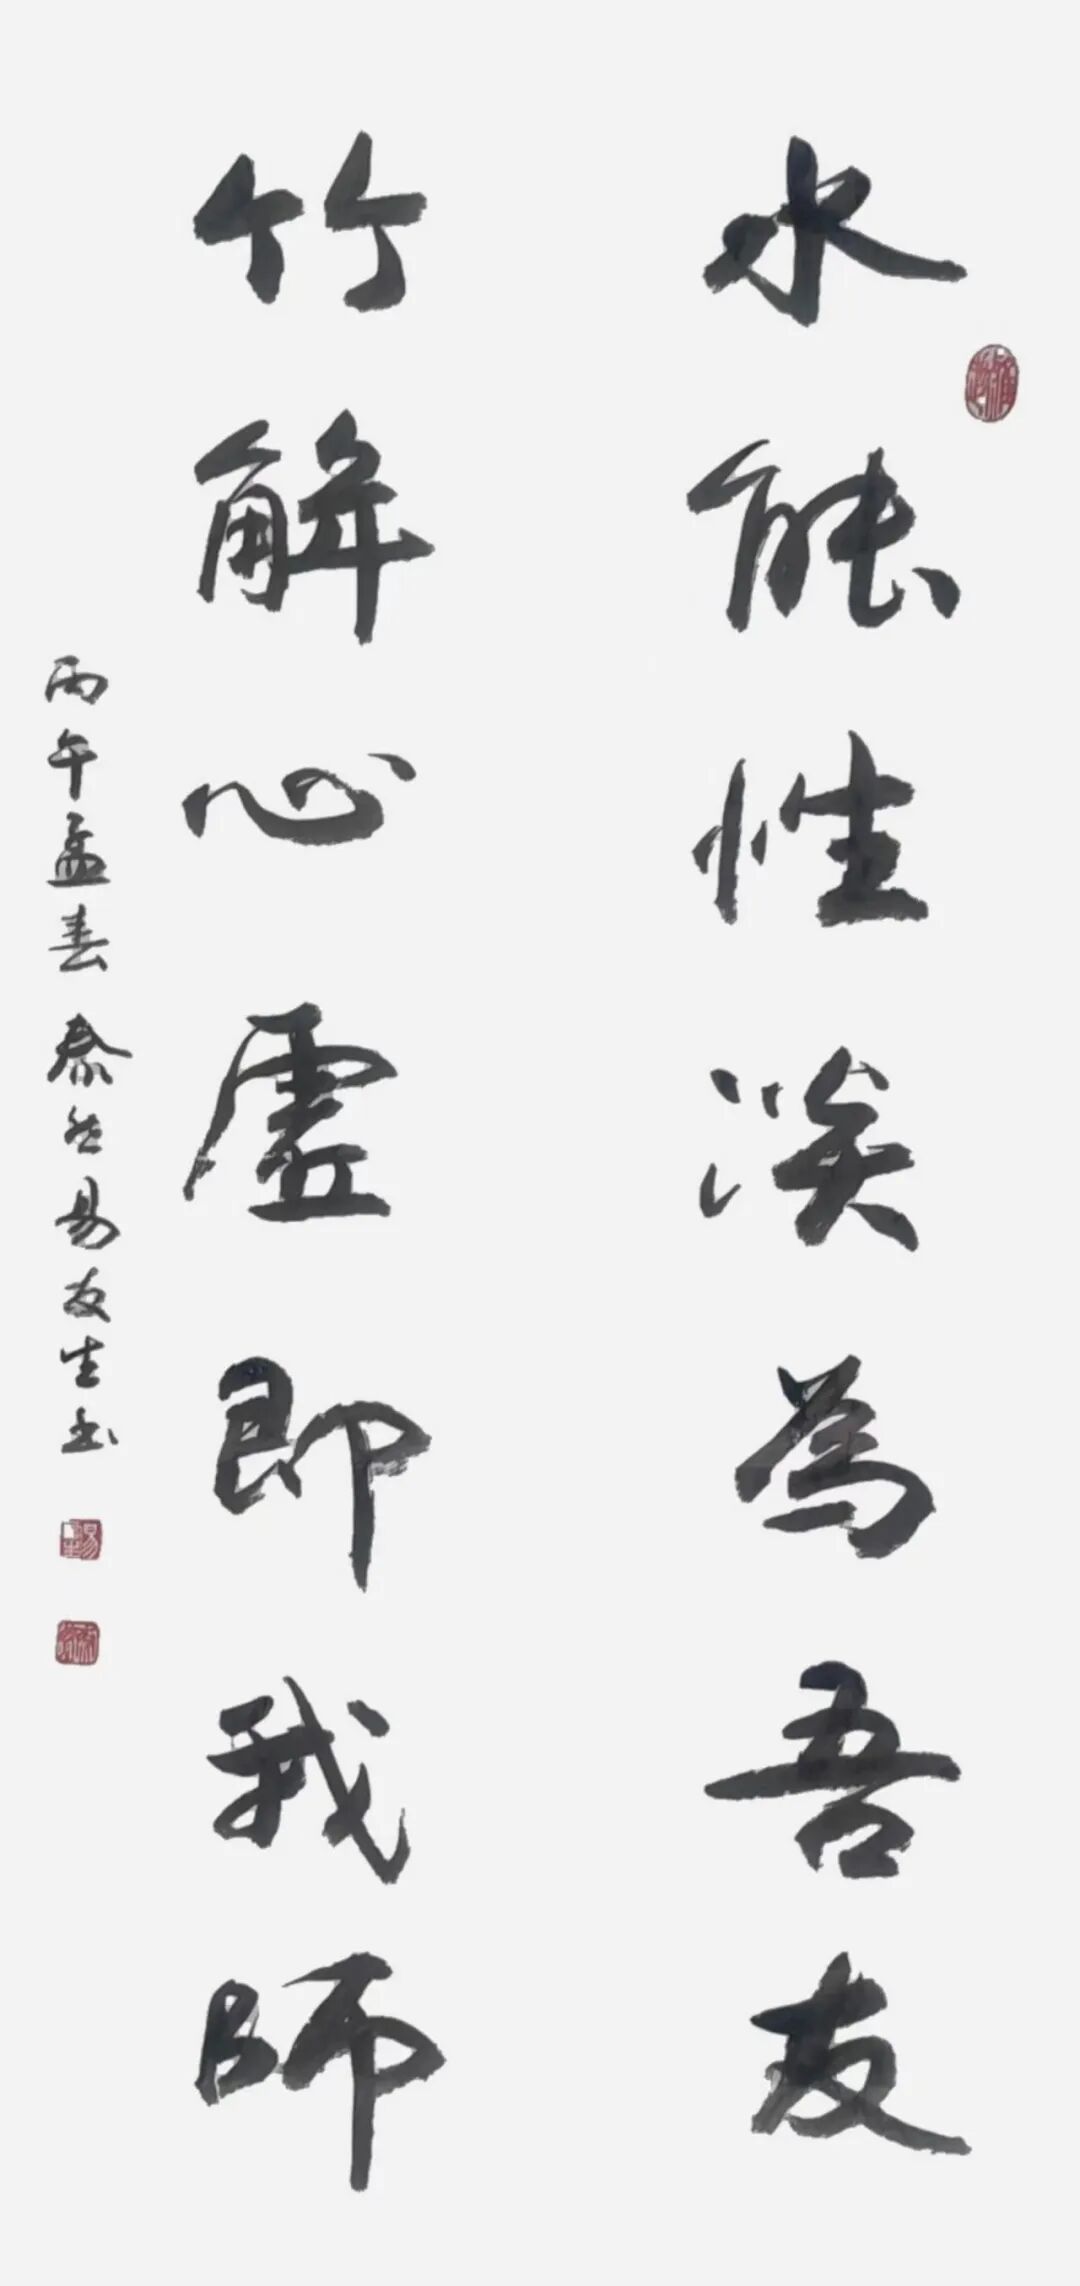 水能性淡為吾友
竹解心虛即我師
丙午孟春 泰然易友生书